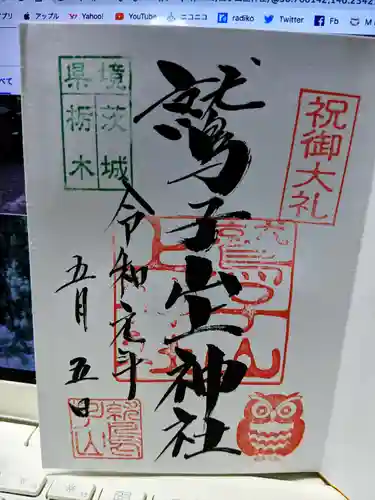 アップル Yahoo! YouTube ニコニコ radiko Twitter Fb
祝御大礼
鷲子山上神社
令和元年
五月五日
境 茨城
県 栃木